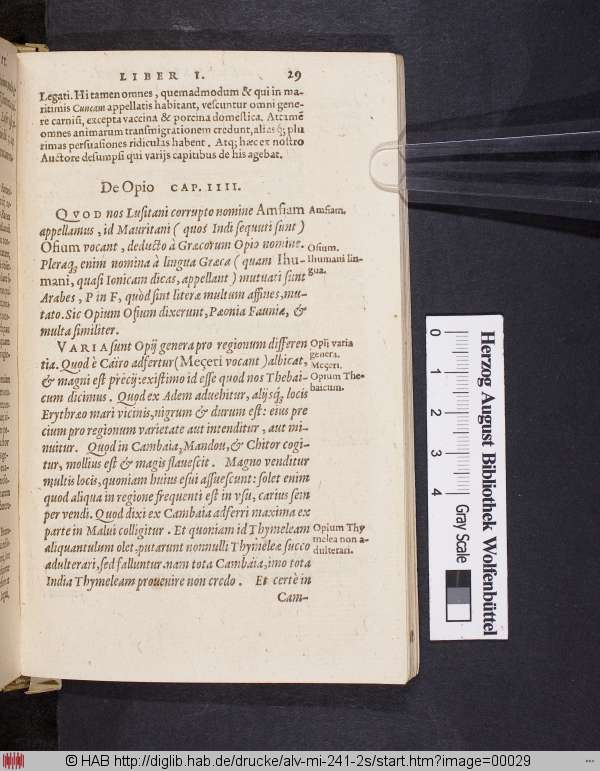 LIBER I. 29
Legati. Hi tamen omnes, quemadmodum & qui in ma-
ritimis Cuncam appellatis habitant, vescuntur omni gene-
re carnis, excepta vaccina & porcina domestica. Attamē
omnes animarum transmigrationem credunt, alias q; plu
rimas persuasiones ridiculas habent. Atq; hæc ex nostro
Auctore desumpsi qui varijs capitibus de his agebat.
De Opio CAP. IIII.
QVOD nos Lusitani corrupto nomine Amfiam
appellamus, id Mauritani ( quos Indi sequuti sunt )
Ofium vocant, deducto à Græcorum Opio nomine.
Pleraq, enim nomina à lingua Græca ( quam Ihu-
mani, quasi Ionicam dicas, appellant ) mutuati sunt
Arabes, P in F, quòd sint literæ multum affines, mu-
tato. Sic Opium Ofium dixerunt, Pæonia Fauniæ, &
multa similiter.
VARIA sunt Opij genera pro regionum differen
tia. Quod è Cairo adfertur (Meçeri vocant ) albicat,
& magni est precij: existimo id esse quod nos Thebai-
cum dicimus. Quod ex Adem aduehitur, alijsq, locis
Erythræo mari vicinis, nigrum & durum est: eius pre
cium pro regionum varietate aut intenditur, aut mi-
nuitur. Quod in Cambaia, Mandou, & Chitor cogi-
tur, mollius est & magis flauescit. Magno venditur
multis locis, quoniam huius esui assuescunt: solet enim
quod aliqua in regione frequenti est in vsu, carius sem
per vendi. Quod dixi ex Cambaia adferri maxima ex
parte in Malui colligitur. Et quoniam id Thymeleam
aliquantulum olet, putarunt nonnulli Thymeleæ succo
adulterari, sed falluntur. nam tota Cambaia, imo tota
India Thymeleam prouenire non credo. Et certè in
Cam-
Amfiam.
Ofium.
Ihumani lin-
gua.
Opij varia
genera.
Meçeri.
Opium The-
baicum.
Opium Thy
melea non a-
dulterari.
0 1 2 3 4
Herzog August Bibliothek Wolfenbüttel
Gray Scale
© HAB http://diglib.hab.de/drucke/alv-mi-241-2s/start.htm?image=00029